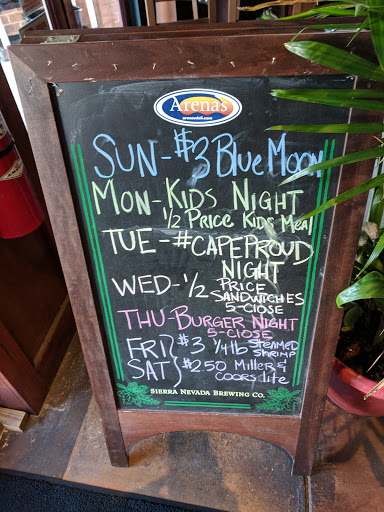 Arena's
arenasdeli.com
SUN-$3 BLUE MOON
MON-KIDS NIGHT
1/2 PRICE KIDS MEAL
TUE-#CAPEPROUD
NIGHT
WED-1/2 PRICE
SANDWICHES
5-CLOSE
THU-BURGER NIGHT
5-CLOSE
FRI } $3 1/4 lb STEAMED
SHRIMP
SAT } $2.50 MILLER &
COORS LITE
SIERRA NEVADA BREWING CO.